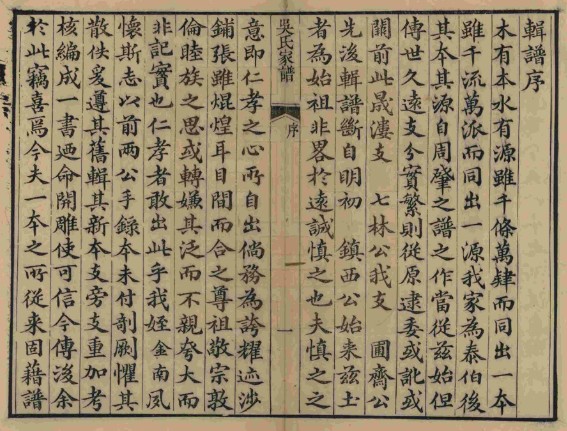 輯譜序
木有本水有源雖千條萬肄而同出一本
雖千流萬派而同出一源我家為泰伯後
其本其源自周肇之譜之作當從茲始但
傳世久遠支分實繁則從原逮委或訛或
闕前此晟漊支 七林公我支 圃齋公
先後輯譜斷自明初 鎮西公始來茲土
者為始祖非畧於遠誠慎之也夫慎之之
吳氏家譜
序
一
意即仁孝之心所自出倘務為誇耀迹涉
鋪張雖焜煌耳目間而合之尊祖敬宗敦
倫睦族之思或轉嫌其泛而不親夸大而
非記實也仁孝者敢出此乎我姪金南夙
懷斯志以前兩公手錄本未付剞劂懼其
散佚爰遵其舊輯其新本支旁支重加考
核編成一書迺命開雕使可信今傳後余
於此竊喜焉今夫一本之所從來固藉譜